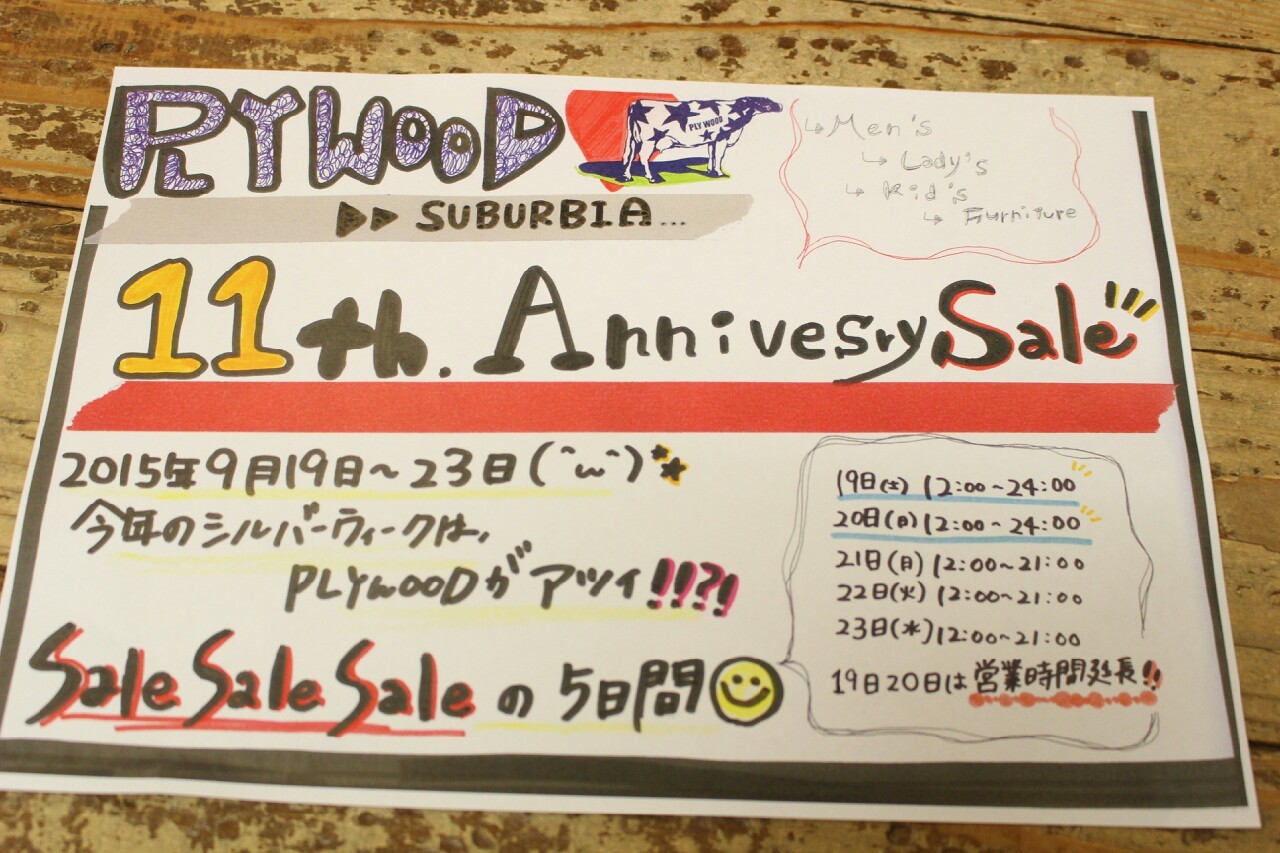 PLYWOOD
PLY WOOD
▶▶ SUBURBIA...
↳ Men's
↳ Lady's
↳ Kid's
↳ Furniture
11th. Annivesry Sale
2015年9月19日～23日(^ω^)
今年のシルバーウィークは、
PLYWOODがアツイ!!?!
Sale Sale Saleの5日間
19日(土) 12:00~24:00
20日(日) 12:00~24:00
21日(月) 12:00~21:00
22日(火) 12:00~21:00
23日(水) 12:00~21:00
19日20日は営業時間延長!!